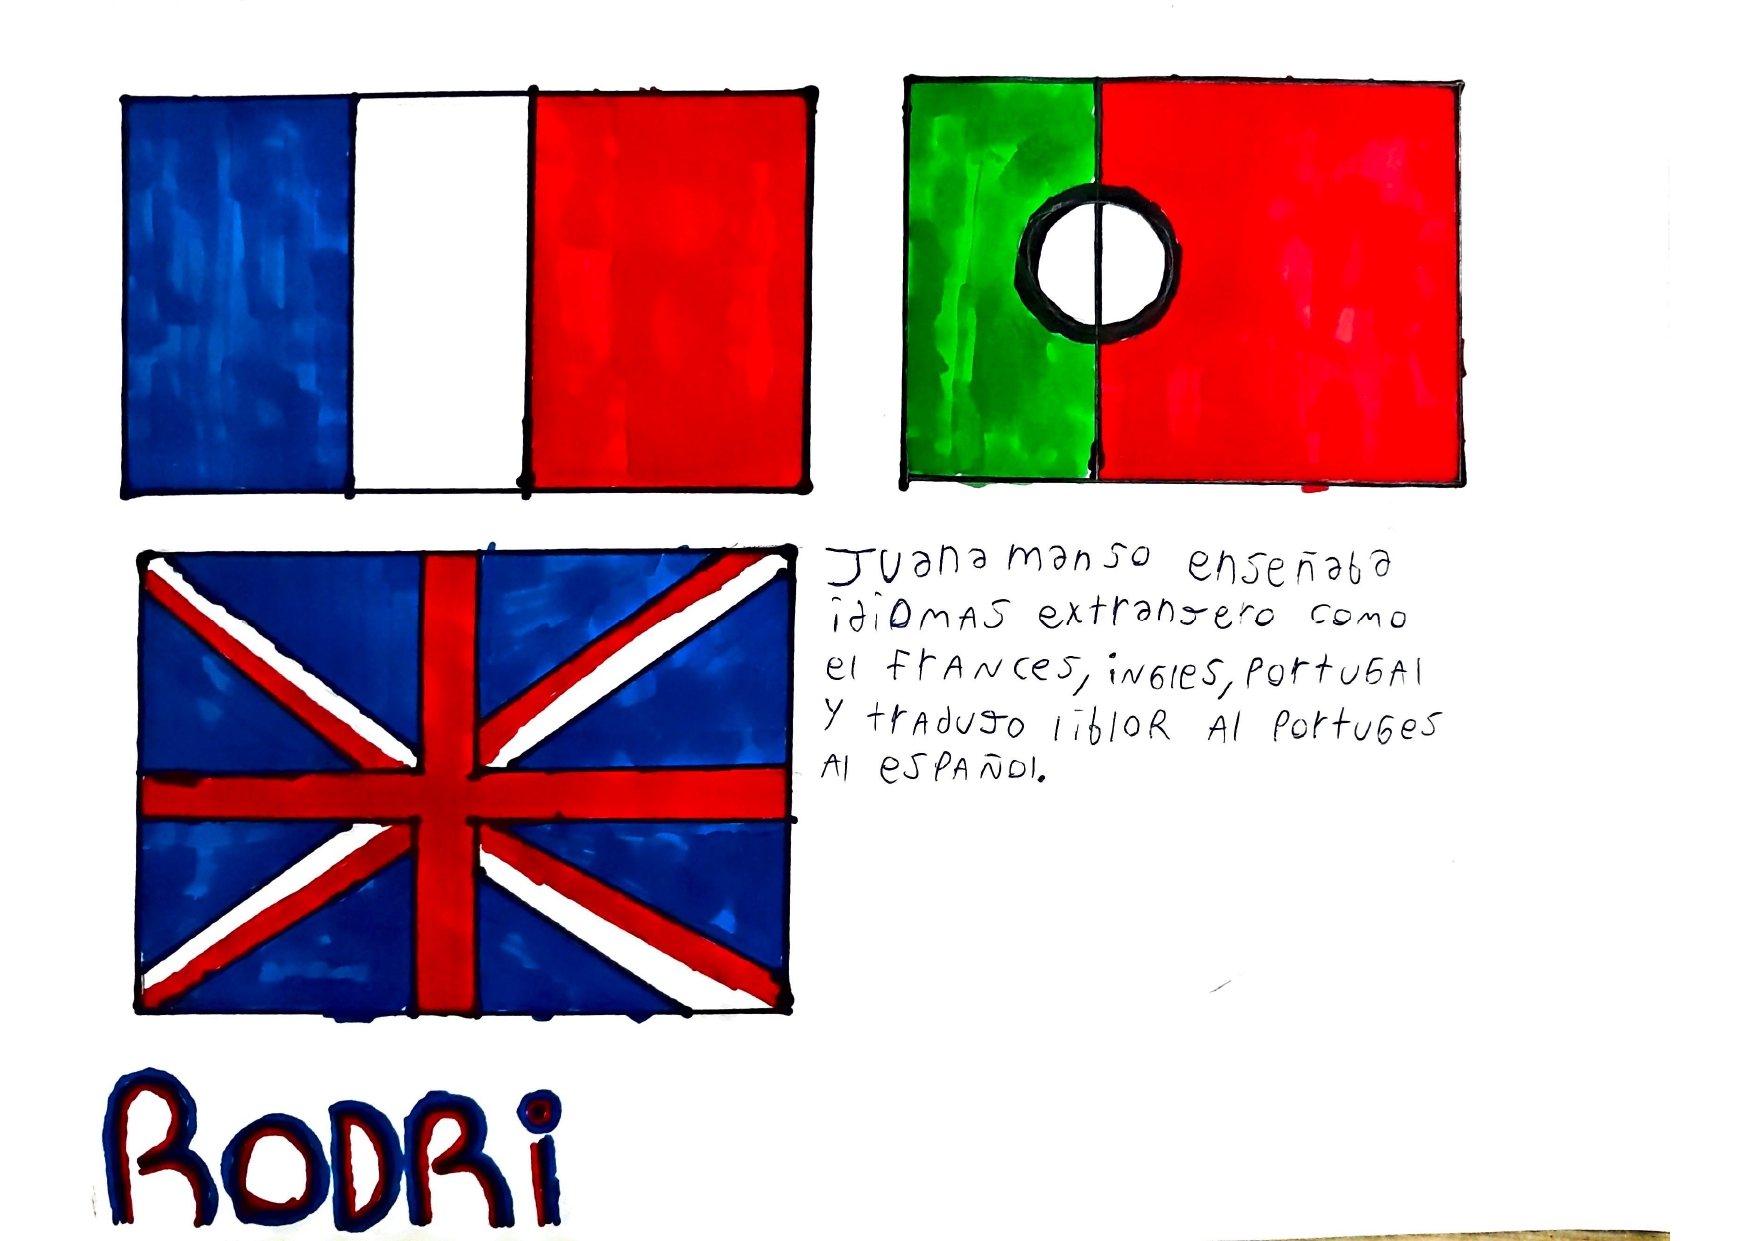 Juana manso enseñaba
idiomas extransero como
el frances, ingles, Portugal
y tradujo liblor al Portuges
al español.
RODRi